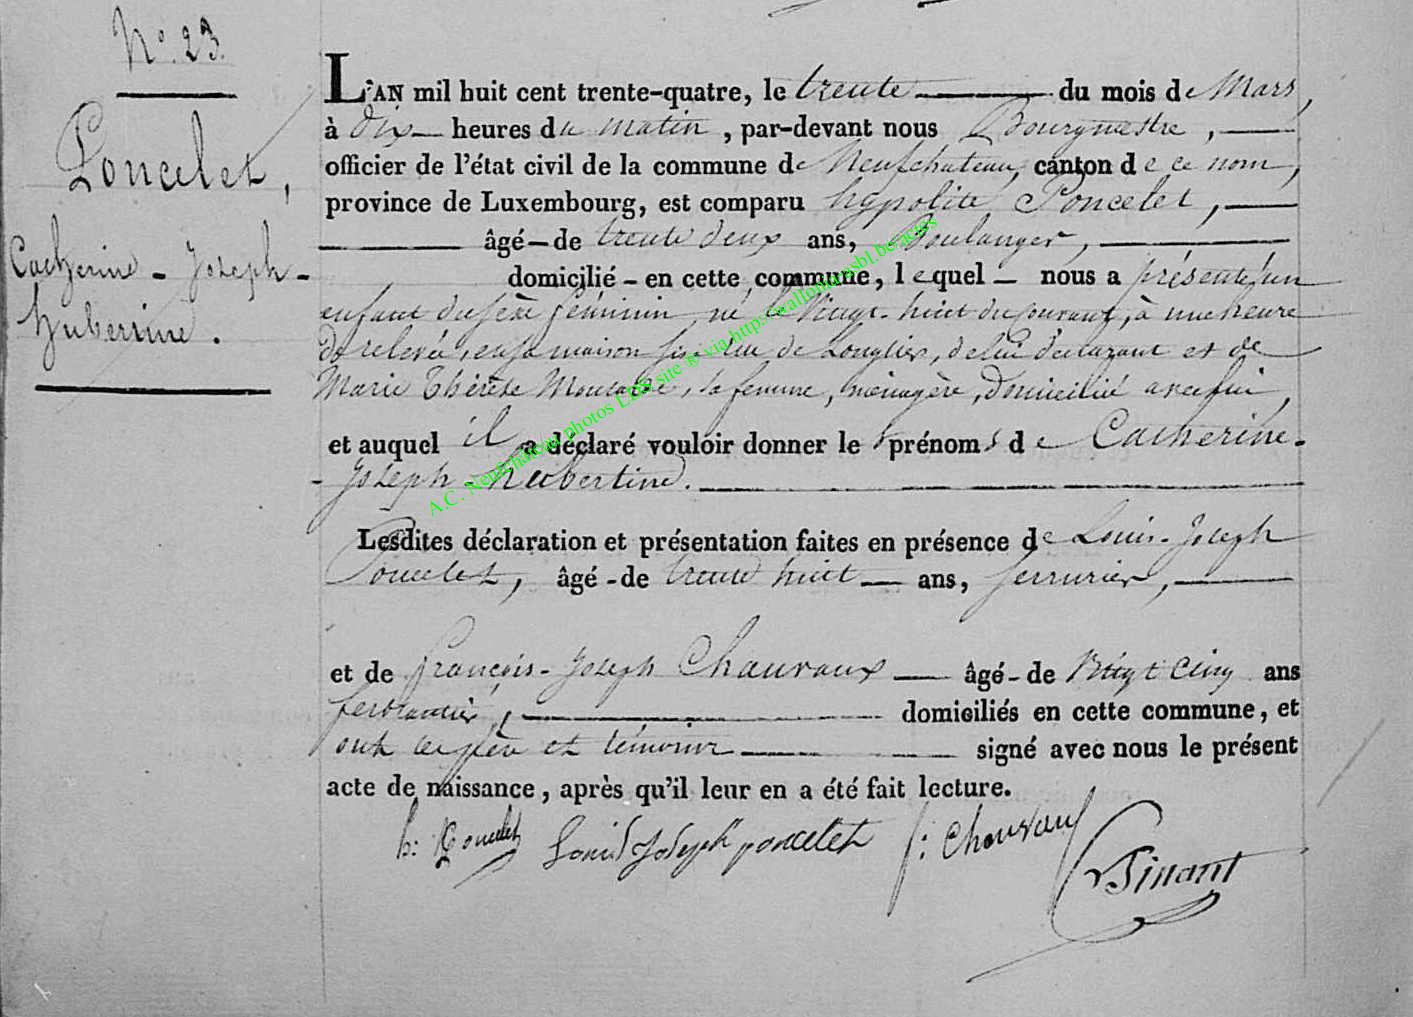 N° 23.
Poncelet,
Catherine - Joseph -
Hubertine.
L'AN mil huit cent trente-quatre, le trente du mois de Mars,
à dix heures du matin, par-devant nous Bourgmestre,
officier de l'état civil de la commune de Neufchateau, canton de ce nom,
province de Luxembourg, est comparu hypolite Poncelet,
âgé-de trente deux ans, Boulanger,
domicilié - en cette commune, lequel - nous a présenté un
enfant du sexe féminin né le Vingt-huit du courant, à une heure
de relevée, en sa maison sise rue de Longlier, de lui déclarant et de
Marie Thérèse, sa femme, ménagère, domicilié avec lui,
et auquel il a déclaré vouloir donner les prénoms de Catherine-
-Joseph-hubertine.
Lesdites déclaration et présentation faites en présence de Louis-Joseph
Poncelet, âgé-de trente huit ans, serrurier,
et de françois-Joseph Chauvaux âgé-de Vingt cinq ans
ferblantier, domiciliés en cette commune, et
ont les père et témoins signé avec nous le présent
acte de naissance, après qu'il leur en a été fait lecture.
h: Poncelet Louis Joseph poncelet f: Chauvaux
Binant
A.C. Neufchâteau photos LDS site @ via http://wallonia.asbl.be/actes